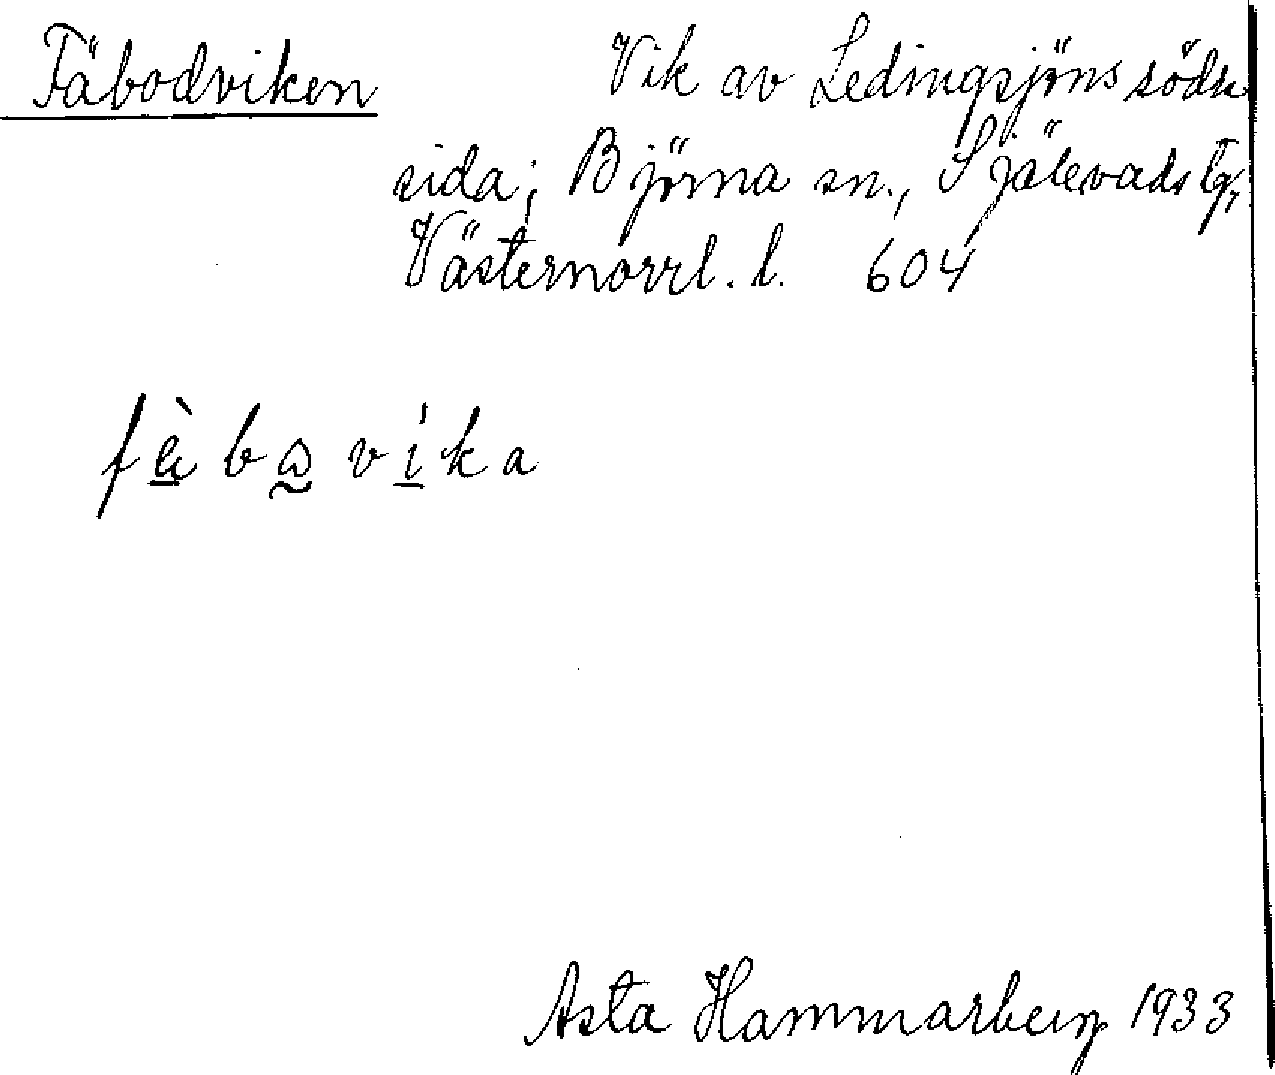 Fäbodviken Vik av Ledingsjöns södra
sida; Björna sn., Själevads tg,
Västernorrl. l. 604
fä̀bωvíka
Asta Hammarberg 1933